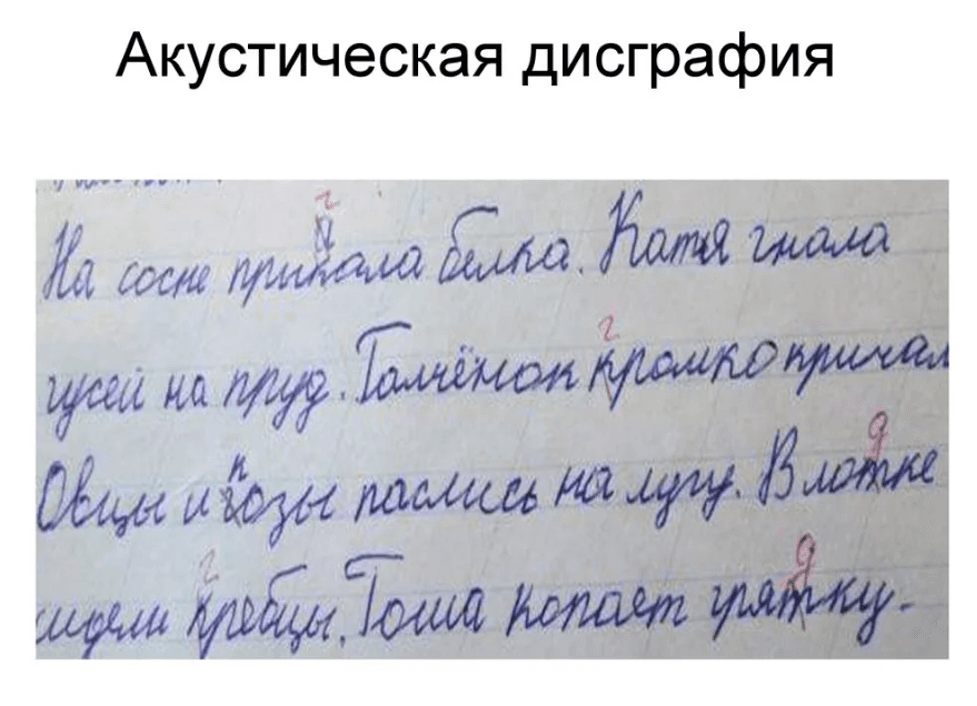 Акустическая дисграфия
г
На сосне прикала белка. Катя гнала
г
гусей на пруд. Галчёнок кромко кричал
к д
Овцы и гозы паслись на лугу. В лотке
г д
сидели кребцы. Гоша копает грятку.